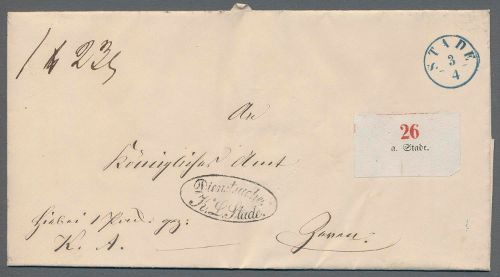 STADE
3
4
26
a. Stade.
An
Königliches Amt
Dienstsache.
K. L. Stade.
hiebei 1 Pack. gez:
K. A.
Zeven.